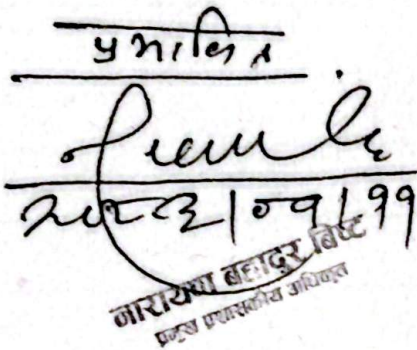 प्रमाणित
२०८३|०१|११
नारायण बहादुर बिष्ट
प्रमुख प्रशासकीय अधिकृत